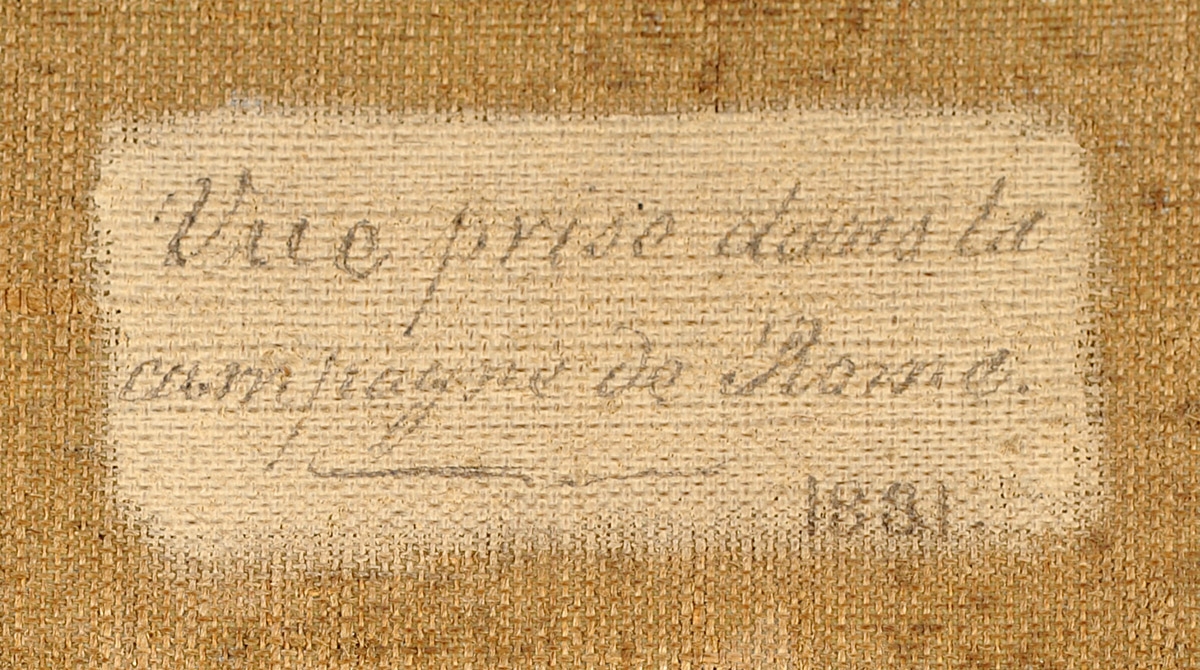 Vue prise dans la
campagne de Rome.
1881.